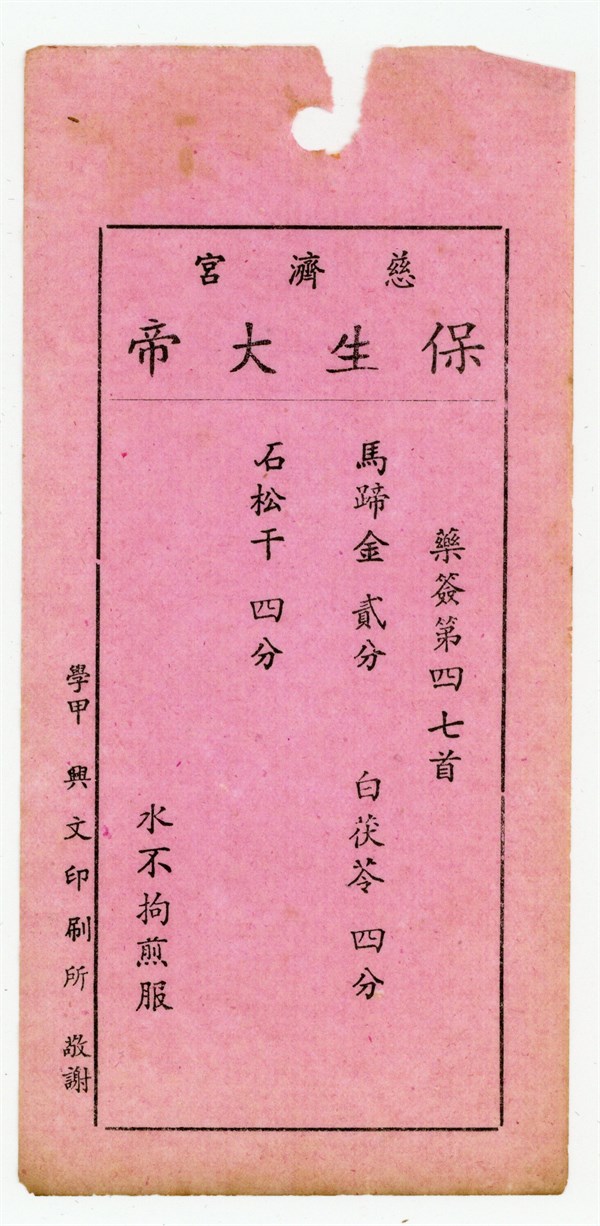 慈濟宮
保生大帝
藥簽第四七首
馬蹄金 貳分 白茯苓 四分
石松干 四分
水不拘煎服
學甲 興文印刷所 敬謝